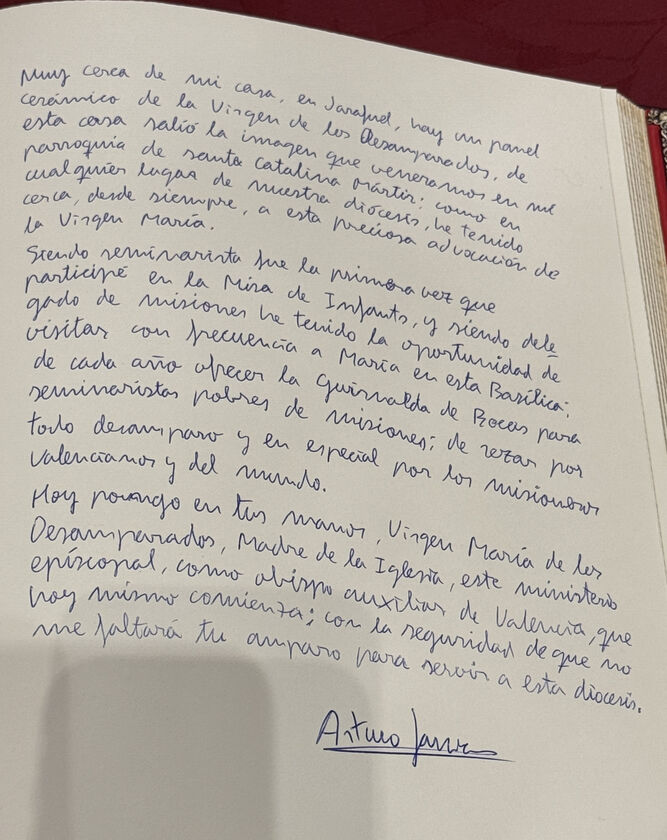 Muy cerca de mi casa, en Jarafuel, hay un panel
cerámico de la Virgen de los Desamparados, de
esta casa salió la imagen que veneramos en mi
parroquia de santa Catalina Mártir; como en
cualquier lugar de nuestra diócesis, he tenido
cerca, desde siempre, a esta preciosa advocación de
la Virgen María.
Siendo seminarista fue la primera vez que
participé en la Misa de Infants, y siendo dele
gado de misiones he tenido la oportunidad de
visitar con frecuencia a María en esta Basílica;
de cada año ofrecer la Guirnalda de Becas para
seminaristas pobres de misiones; de rezar por
todo desamparo y en especial por los misioneros
valencianos y del mundo.
Hoy pongo en tus manos, Virgen María de los
Desamparados, Madre de la Iglesia, este ministerio
episcopal, como obispo auxiliar de Valencia, que
hoy mismo comienza; con la seguridad de que no
me faltará tu amparo para servir a esta diócesis.
Arturo